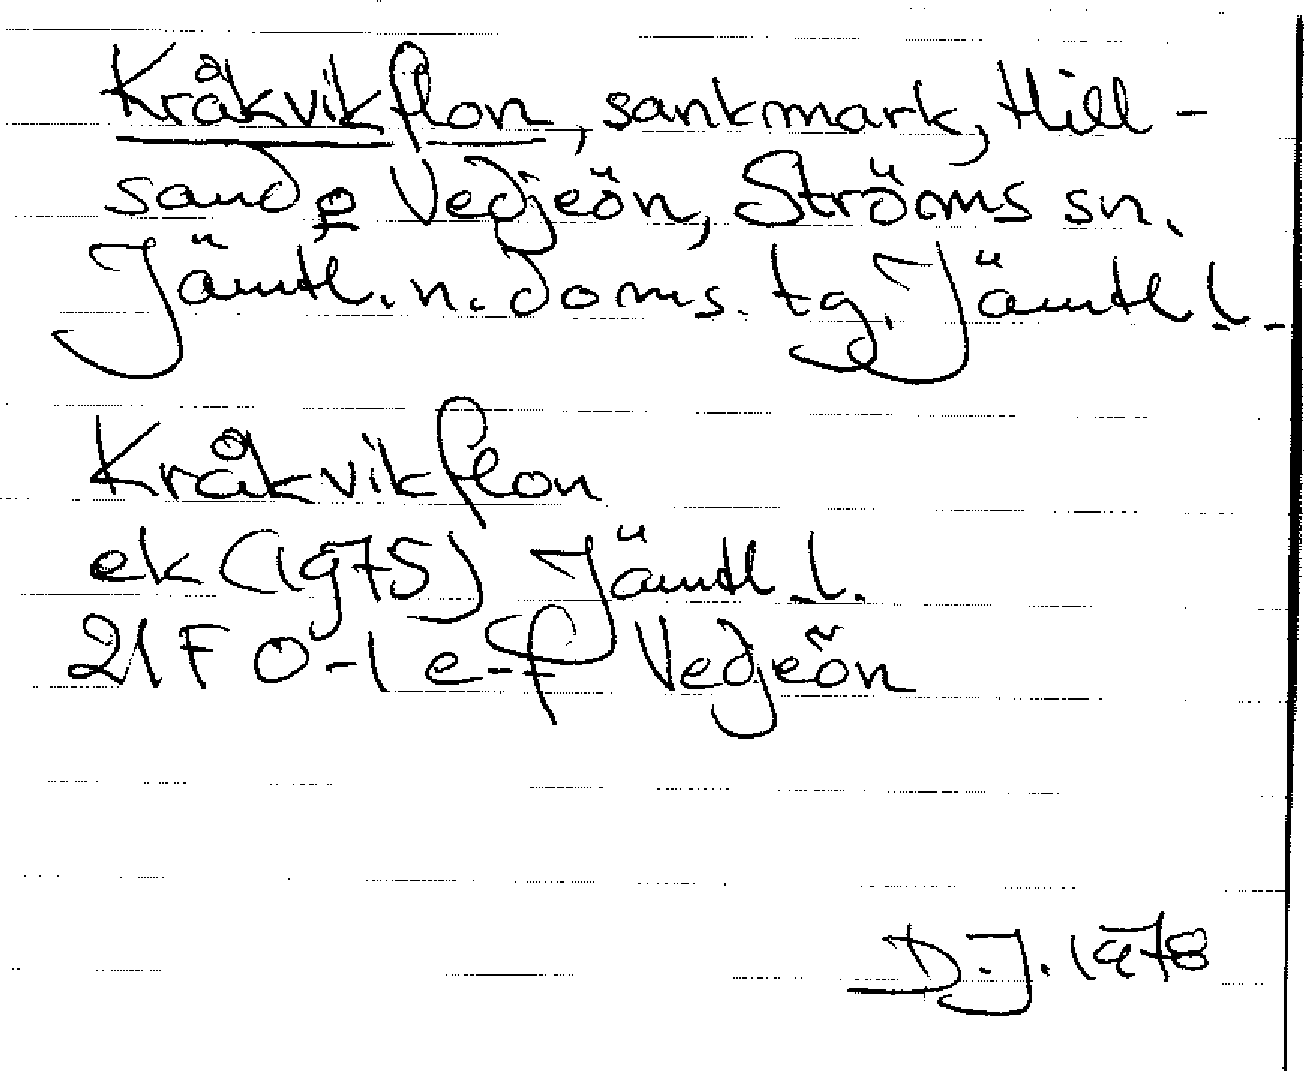 Kråkvikflon, sankmark, Hill-
sand o Vedjeön, Ströms sn.
Jämtl. n. doms. tg, Jämtl l.
Kråkvikflon
ek (1975) Jämtl l.
21F 0-1 e-f Vedjeön
D.J. 1978